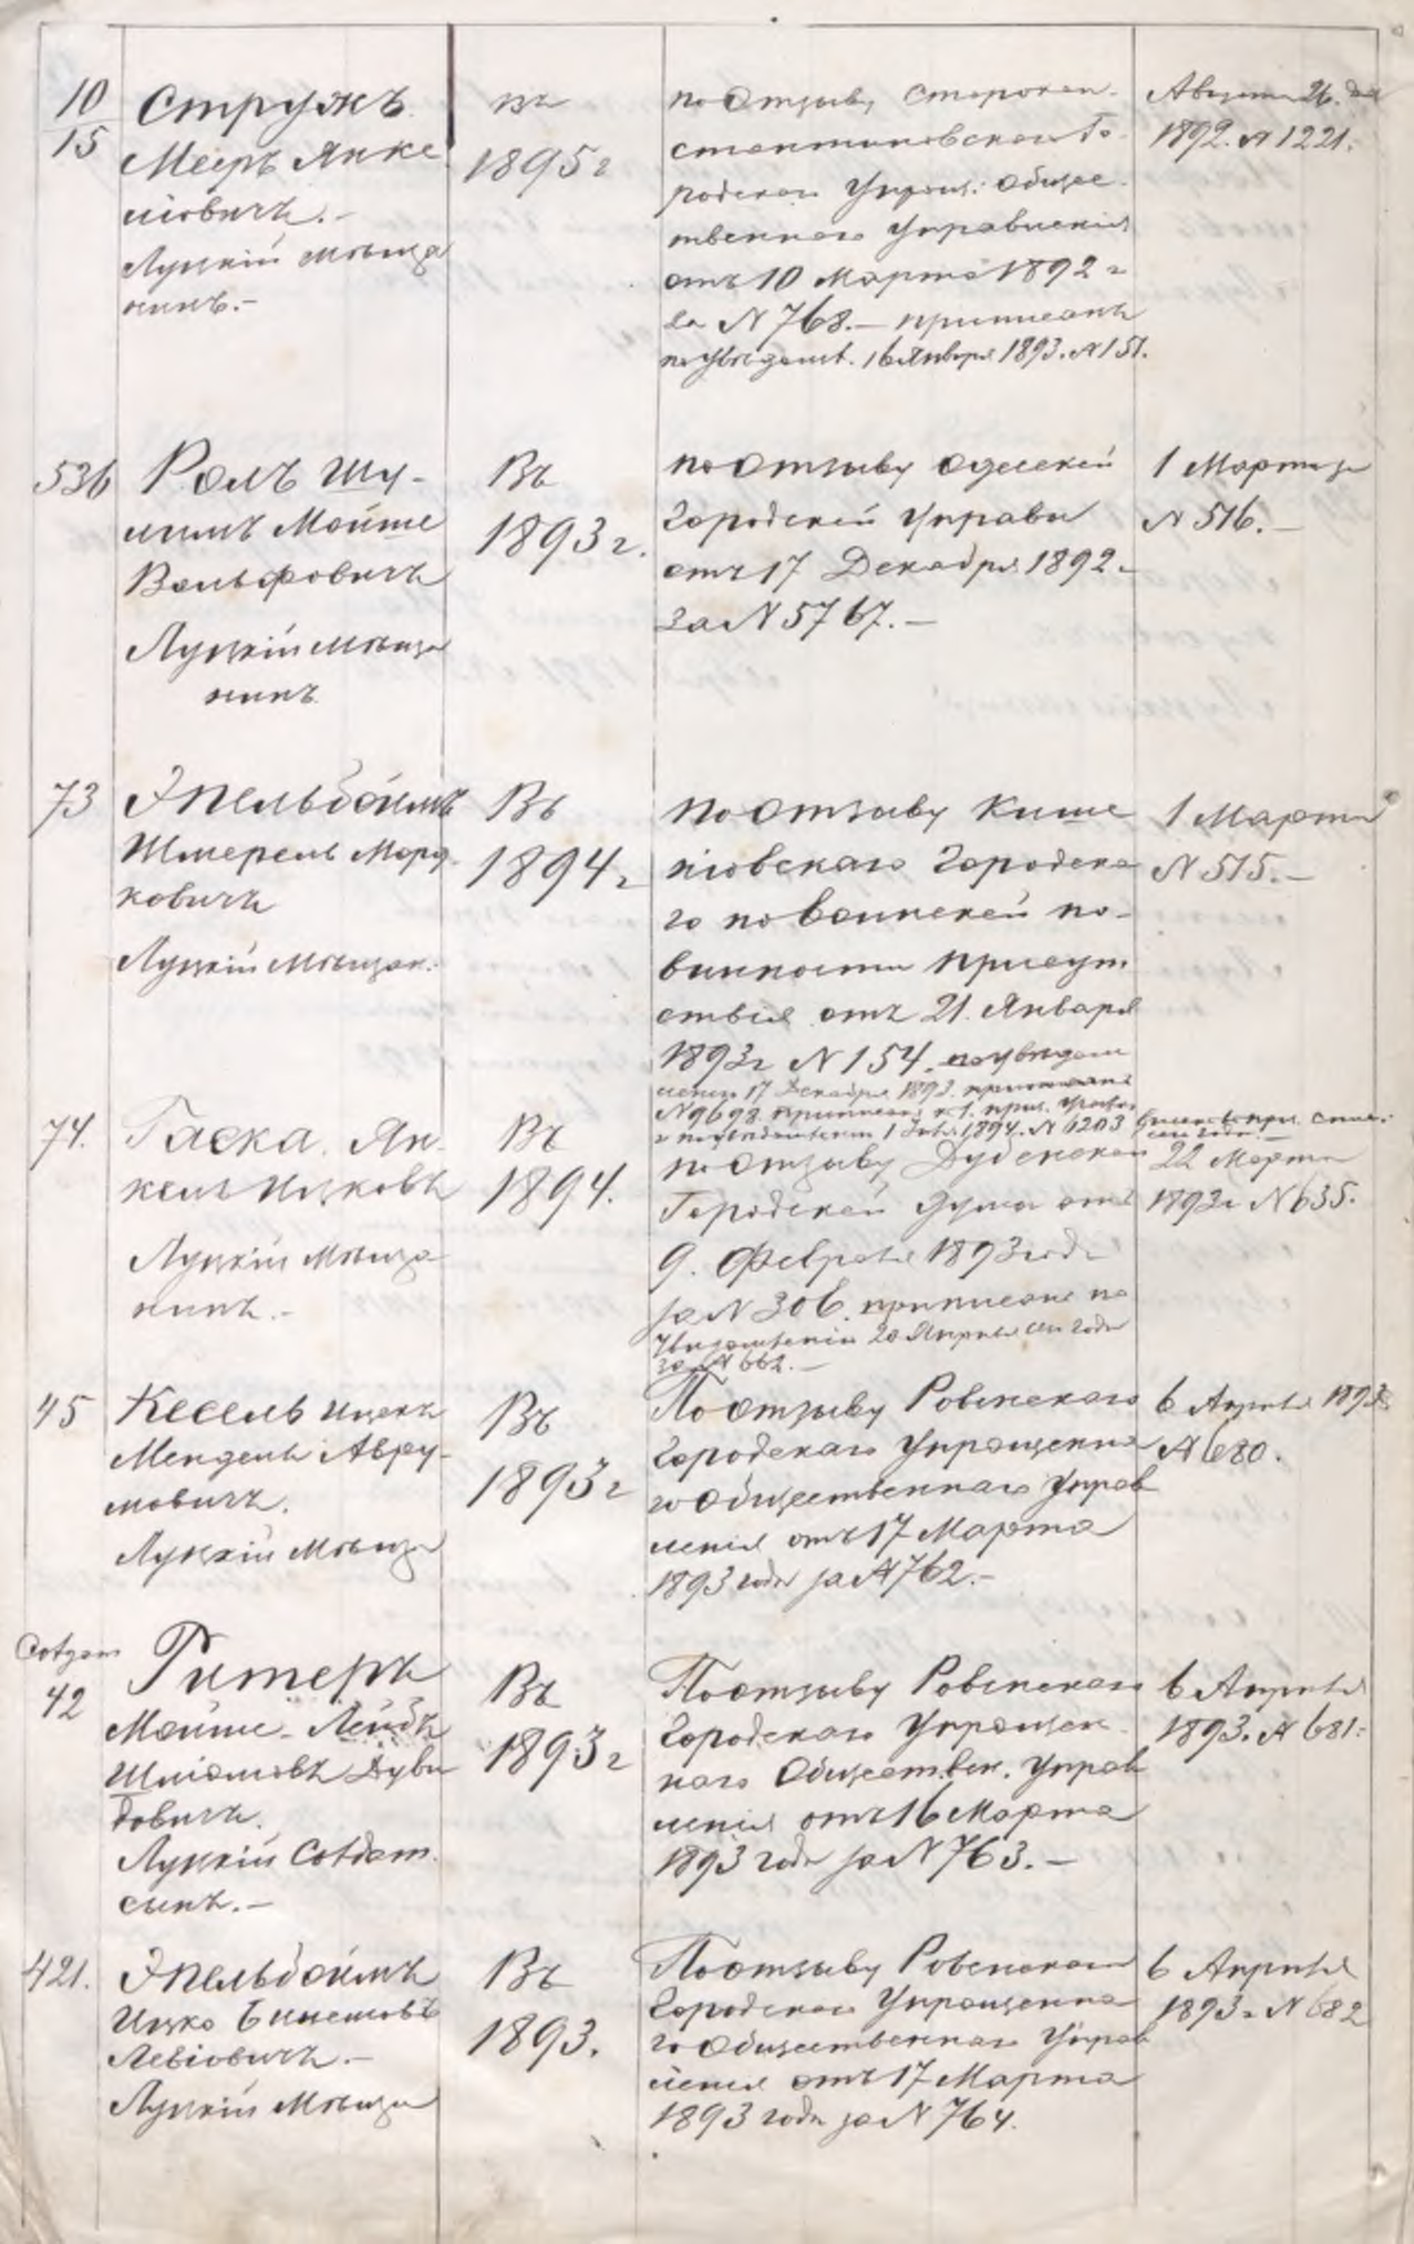 10
15
Стружъ
Мееръ Янке
ліовичъ.-
Луцкій мѣща
нинъ.-
въ
1895 г
по отзыву Старокон-
стантиновскаго Го-
родского Упрощ: Обще-
ственнаго Управленія
отъ 10 Марта 1892 г
за N 768.- приписанъ
по увѣдомл. 16 Января 1893. N 151.
Августа 26. дня
1892. N 1221.
536
Ролъ Шу-
лимъ Мойше
Вольфовичъ
Луцкій мѣща
нинъ
Въ
1893 г.
по отзыву Одесской
Городской Управы
отъ 17 Декабря 1892 г
за N 5767.-
1 Марта за
N 516.-
73
Эпельбоймъ
Шмерель Морд
ковичъ
Луцкій Мѣщан.
Въ
1894 г
по отзыву Кише
нювскаго Городска
го по воинской по-
винности присут
ствія отъ 21. Января
1893 г N 154. по увѣдом
ленію 17 Декабря 1893. приписанъ
N 9698 приписанъ к 1. приз. участ.
1894. N 6203
1 Марта
N 515.-
74.
Таска. Ян-
кель Ицковъ
Луцкій Мѣща-
нинъ.-
Въ
1894.
по отзыву Дубенской
Городской Думы отъ
9. Февраля 1893 года
за N 306. приписанъ по
Увѣдомленію 20 Апрѣля сего года
за N 662.-
22 Марта
1893 г N 635.
45
Кесель Ицекъ
Мендель Авру-
мовичъ.
Луцкій Мѣща
Въ
1893 г
По отзыву Ровенского
Городскаго Упрощенна
го Общественнаго Управ
ленія отъ 17 Марта
1893 года за N 762.-
6 Апрѣля 1893
N 680.
Солдат
42
Ритеръ
Мойше-Лейбъ
Шліомовъ Дуви
довичъ.
Луцкій Солдат.
сынъ.-
Въ
1893 г
По отзыву Ровенскаго
Городскаго Упрощен-
наго Обществен. Управ
ленія отъ 16 Марта
1893 года за N 763.-
6 Апрѣля
1893. N 681.
421.
Эпельбоймъ
Ицко Бинемовъ
Левіовичъ.-
Луцкій Мѣща
Въ
1893.
По отзыву Ровенскаго
Городскаго Упрощенна
го Общественнаго Управ
ленія отъ 17 Марта
1893 года за N 764.
6 Апрѣля
1893 г N 682